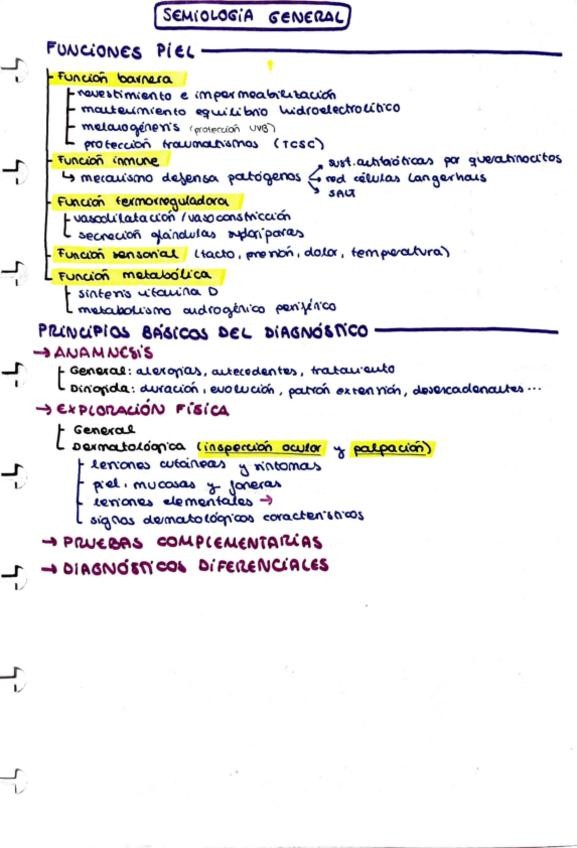 SEMIOLOGIA GENERAL
FUNCIONES PIEL
Función barrera
revestimiento e impermeabilización
mantenimiento equilibrio hidroelectrolítico
melanogénesis (protección UVB)
protección traumatismos (TCSC)
Función inmune
↳ mecanismo defensa patógenos
sust. antibióticas por queratinocitos
red células Langerhans
SALT
Función termorreguladora
vasodilatación / vasoconstricción
secreción glándulas sudoríparas
Función sensorial (tacto, presión, dolor, temperatura)
Función metabólica
síntesis vitamina D
metabolismo androgénico periférico
PRINCIPIOS BÁSICOS DEL DIAGNÓSTICO
→ ANAMNESIS
General: alergias, antecedentes, tratamiento
Dirigida: duración, evolución, patrón extensión, desencadenantes ...
→ EXPLORACIÓN FÍSICA
General
Dermatológica (inspección ocular y palpación)
lesiones cutáneas y síntomas
piel, mucosas y faneras
lesiones elementales →
signos dermatológicos característicos
→ PRUEBAS COMPLEMENTARIAS
→ DIAGNÓSTICOS DIFERENCIALES